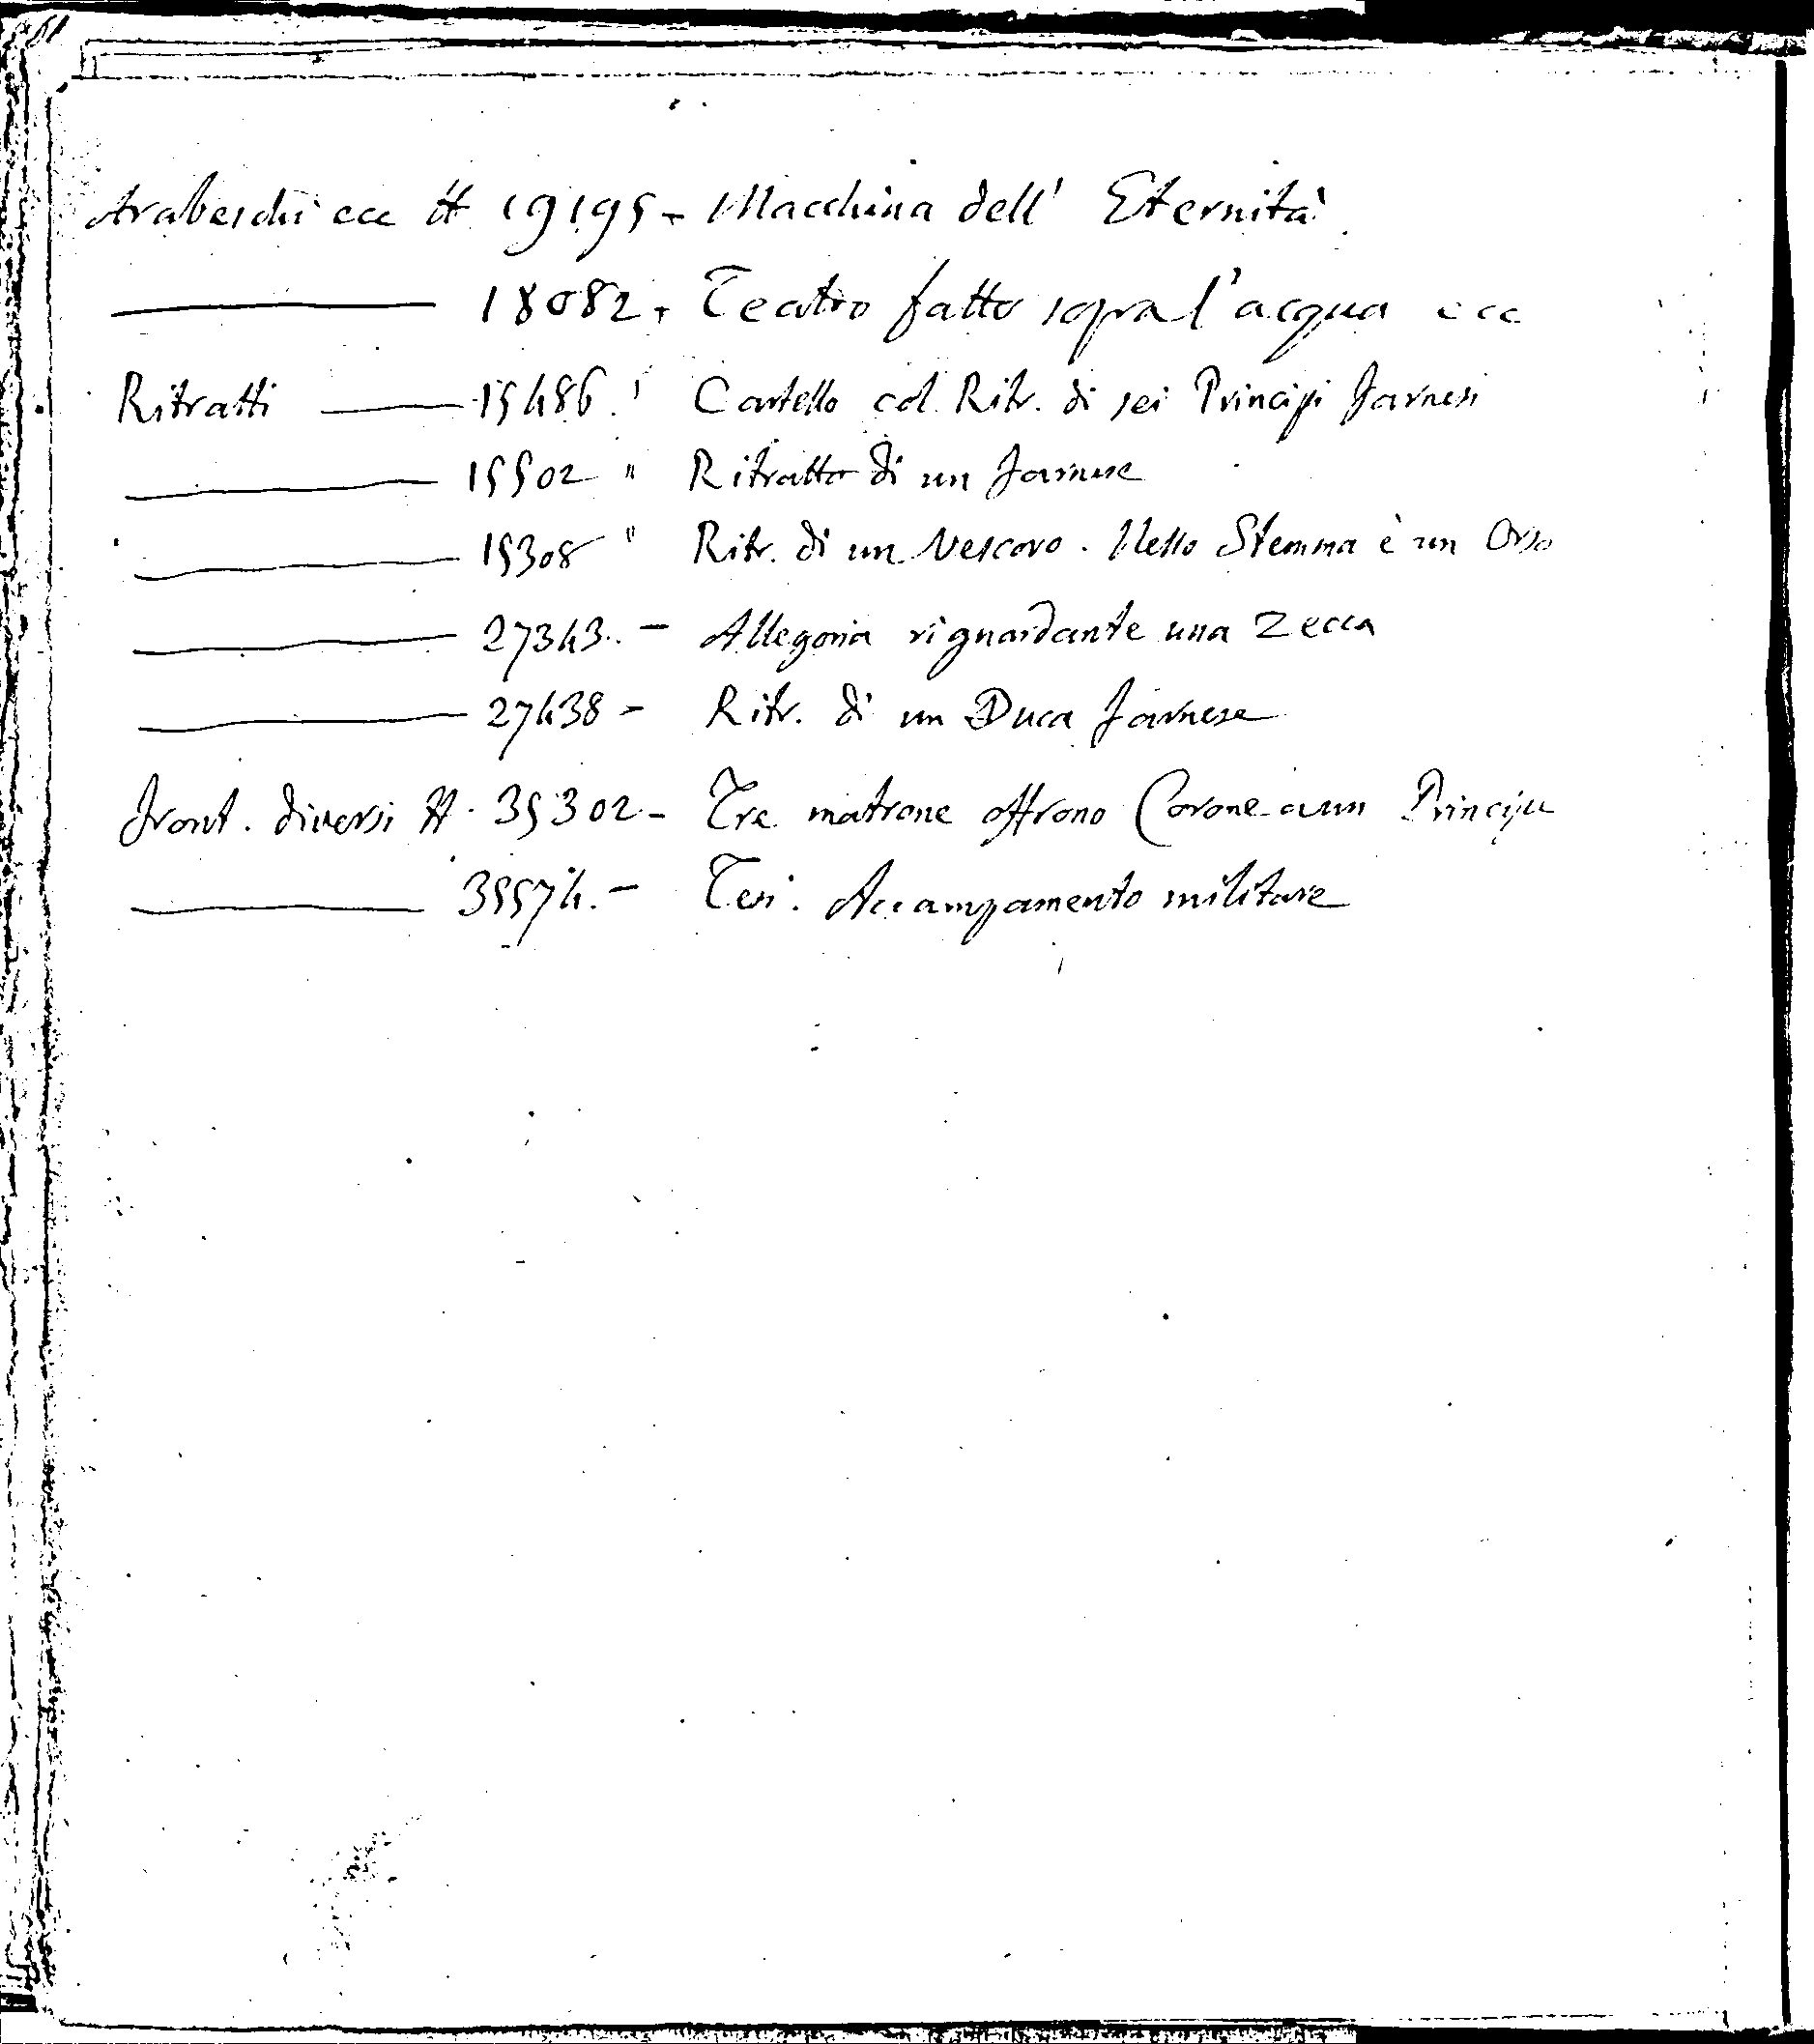 Arabeschi ecc # 19195 - Macchina dell' Eternità
18082 - Teatro fatto sopra l'acqua ecc
Ritratti 15486 " Cartello col Ritr. di sei Principi Farnesi
15502 " Ritratto di un Farnese
15308 " Ritr. di un Vescovo. Nello Stemma è un Orso
27343. - Allegoria riguardante una Zecca
27438 - Ritr. di un Duca Farnese
Front. diversi # 35302 - Tre matrone offrono Corone a un Principe
35574. - Tesi. Accampamento militare